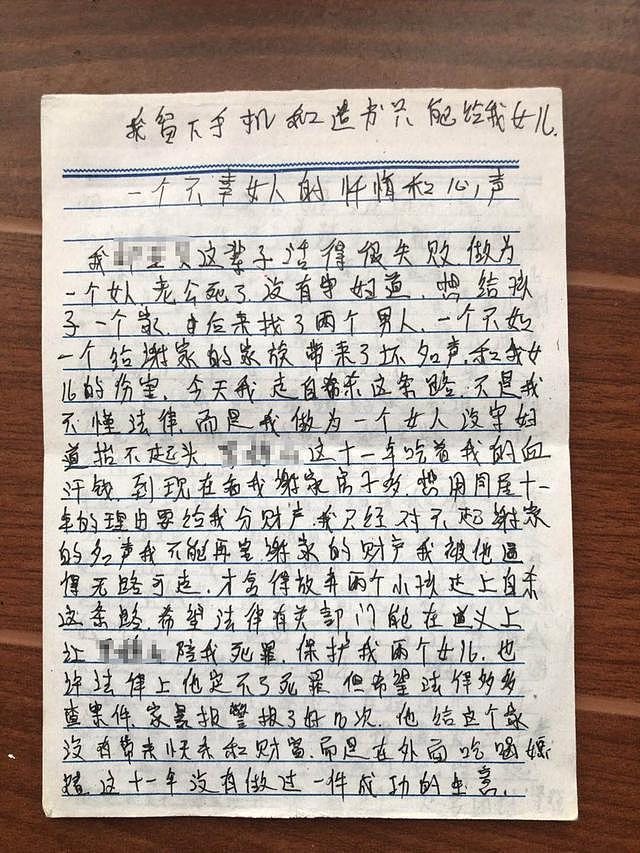 我留下手机和遗书只能给我女儿.
一个不幸女人的忏悔和心声
我这辈子活得很失败做为
一个女人,老公死了,没有守妇道,想给孩
子一个家,后来找了两个男人,一个不如
一个给谢家的家族带来了坏名声和我女
儿的伤害,今天我走自杀这条路,不是我
不懂法律,而是我做为一个女人没守妇
道抬不起头 这十一年吃着我的血
汗钱,到现在看我谢家房子多,想用同居十一
年的理由要给我分财产,我已经对不起谢家
的名声我不能再害谢家的财产我被他逼
得无路可走,才舍得放弃两个小孩走上自杀
这条路,希望法律有关部门能在道义上
让 陪我死罪,保护我两个女儿,也
许法律上他定不了死罪但希望法律多多
查案件,家暴报警报了好几次,他给这个家
没有带来快乐和财富,而是在外面吃喝嫖
赌,这十一年没有做过一件成功的生意.